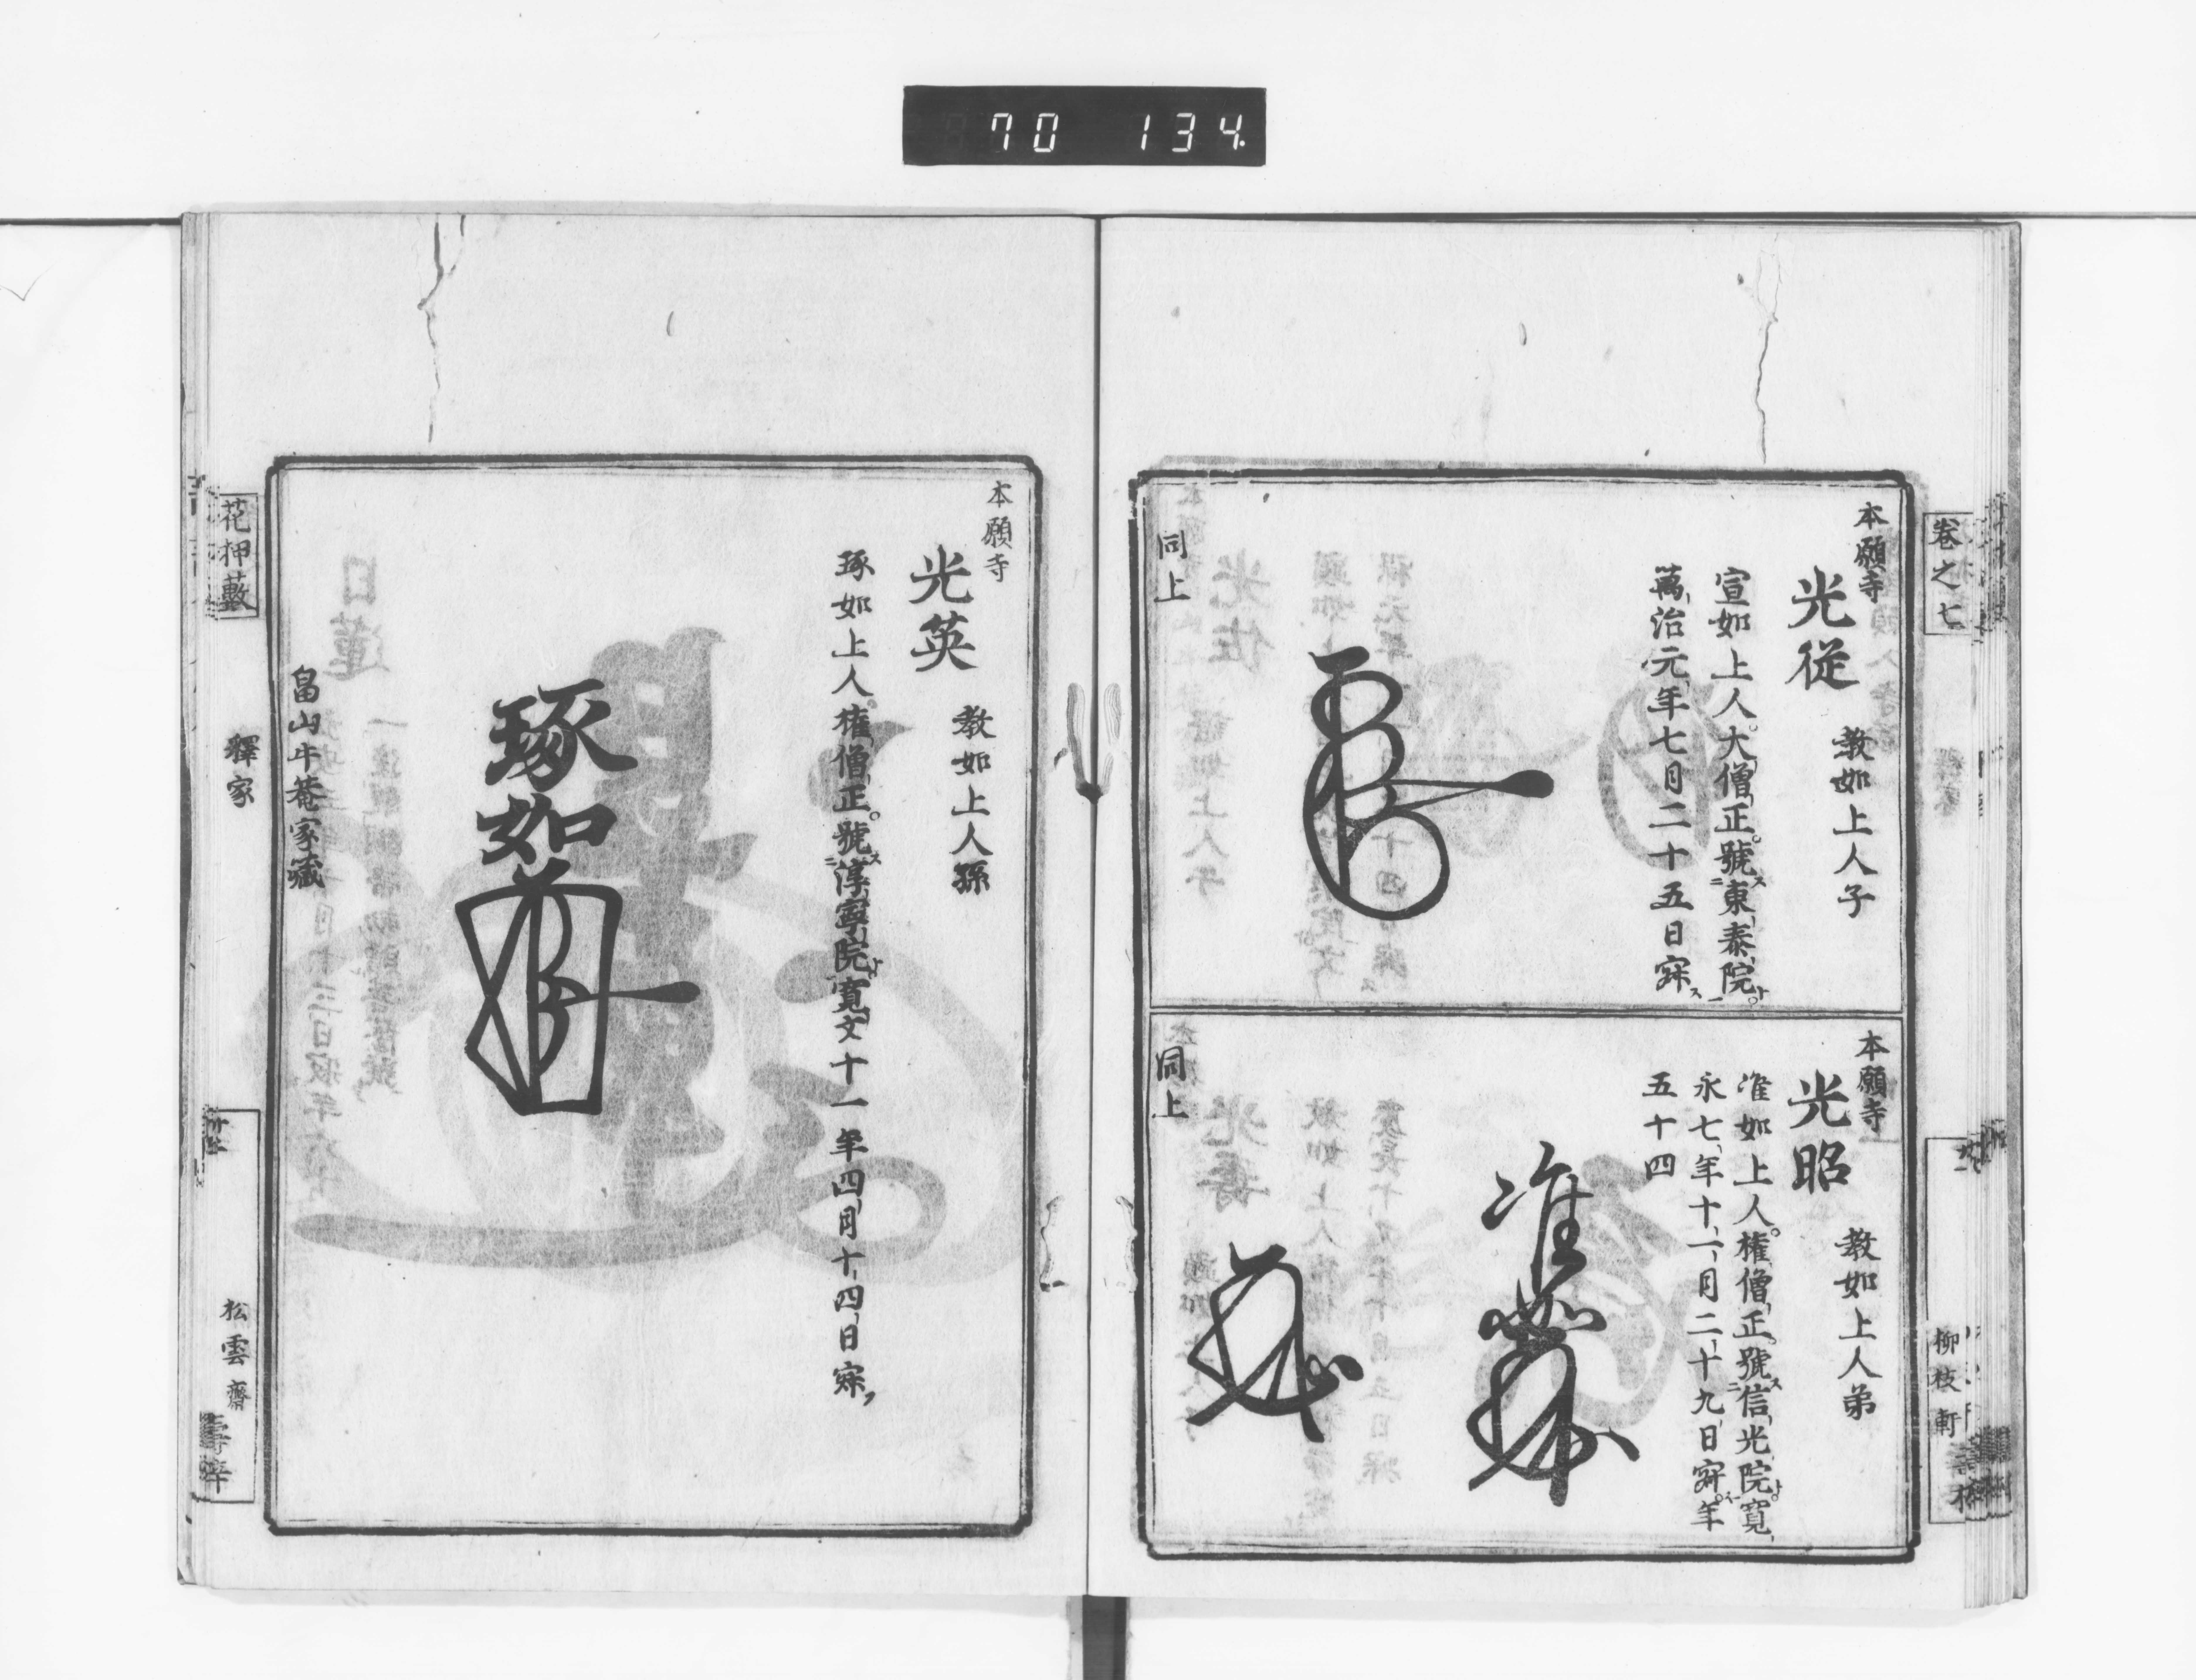 70 134
卷之七
柳枝軒
本願寺
光從
教如上人子
宣如上人大僧正號ス東泰院ト
萬治元年七月二十五日寂ス
同上
本願寺
光昭
教如上人弟
准如上人權僧正號ス信光院ト寬
永七年十一月二十九日寂年
五十四
准如
同上
本願寺
光英
教如上人孫
琢如上人權僧正號ス淳寧院ト寛文十一年四月十四日寂ス
琢如
畠山牛菴家藏
花押藪
釋家
松雲齋